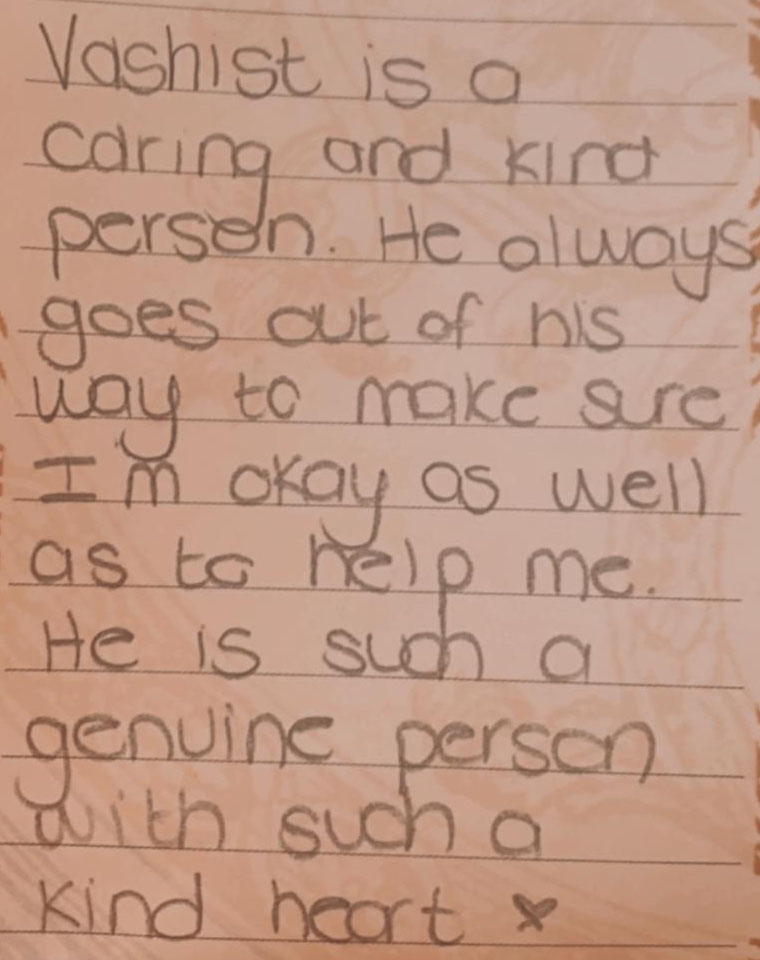 Vashist is a
caring and kind
person. He always
goes out of his
way to make sure
I'm okay as well
as to help me.
He is such a
genuine person
with such a
kind heart